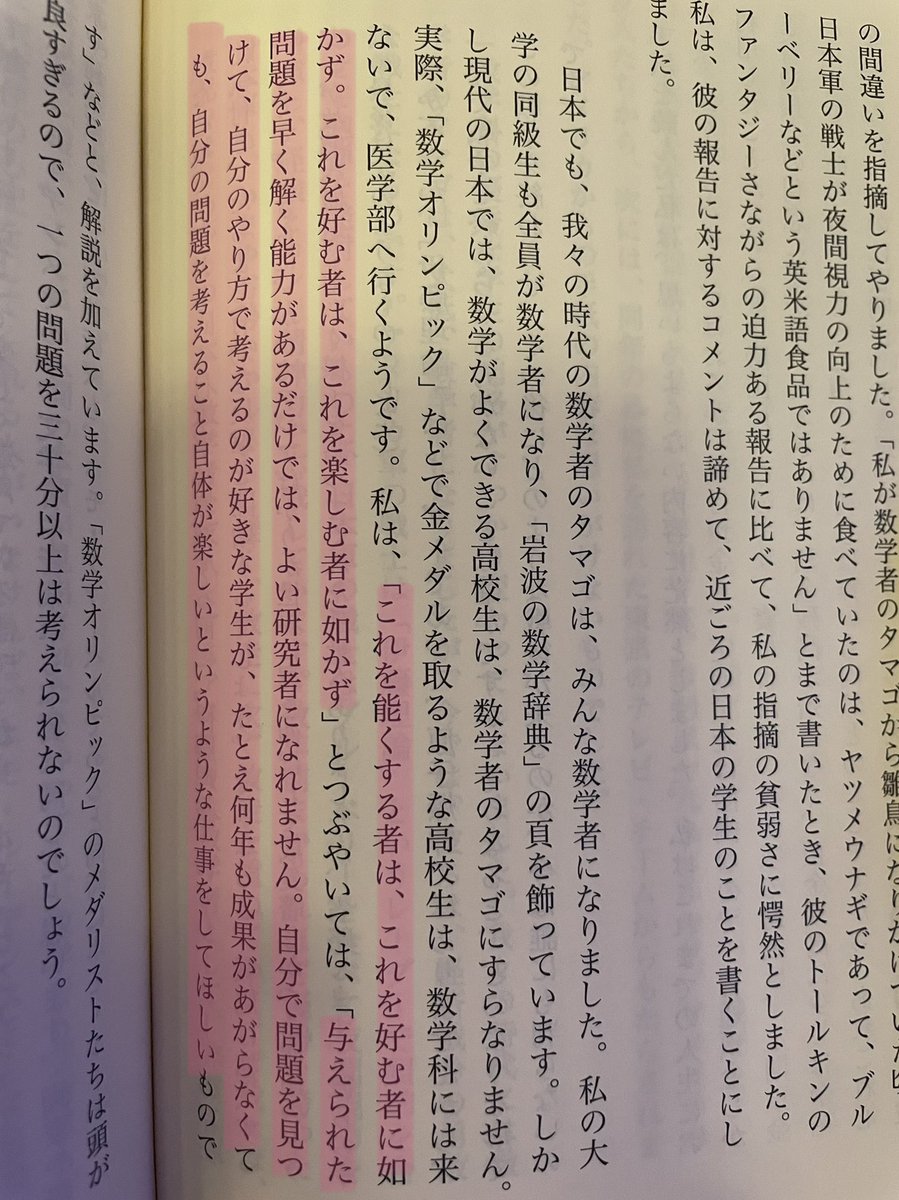 の間違いを指摘してやりました。「私が数学者のタマゴから雛鳥になりかけていた
日本軍の戦士が夜間視力の向上のために食べていたのは、ヤツメウナギであって、ブル
ーベリーなどという英米語食品ではありません」とまで書いたとき、彼のトールキンの
ファンタジーさながらの迫力ある報告に比べて、私の指摘の貧弱さに愕然としました。
私は、彼の報告に対するコメントは諦めて、近ごろの日本の学生のことを書くことにし
ました。
日本でも、我々の時代の数学者のタマゴは、みんな数学者になりました。私の大
学の同級生も全員が数学者になり、「岩波の数学辞典」の頁を飾っています。しか
し現代の日本では、数学がよくできる高校生は、数学者のタマゴにすらなりません。
実際、「数学オリンピック」などで金メダルを取るような高校生は、数学科には来
ないで、医学部へ行くようです。私は、「これを能くする者は、これを好む者に如
かず。これを好む者は、これを楽しむ者に如かず」とつぶやいては、「与えられた
問題を早く解く能力があるだけでは、よい研究者になれません。自分で問題を見つ
けて、自分のやり方で考えるのが好きな学生が、たとえ何年も成果があがらなくて
も、自分の問題を考えること自体が楽しいというような仕事をしてほしいもので
す」などと、解説を加えています。「数学オリンピック」のメダリストたちは頭が
良すぎるので、一つの問題を三十分以上は考えられないのでしょう。